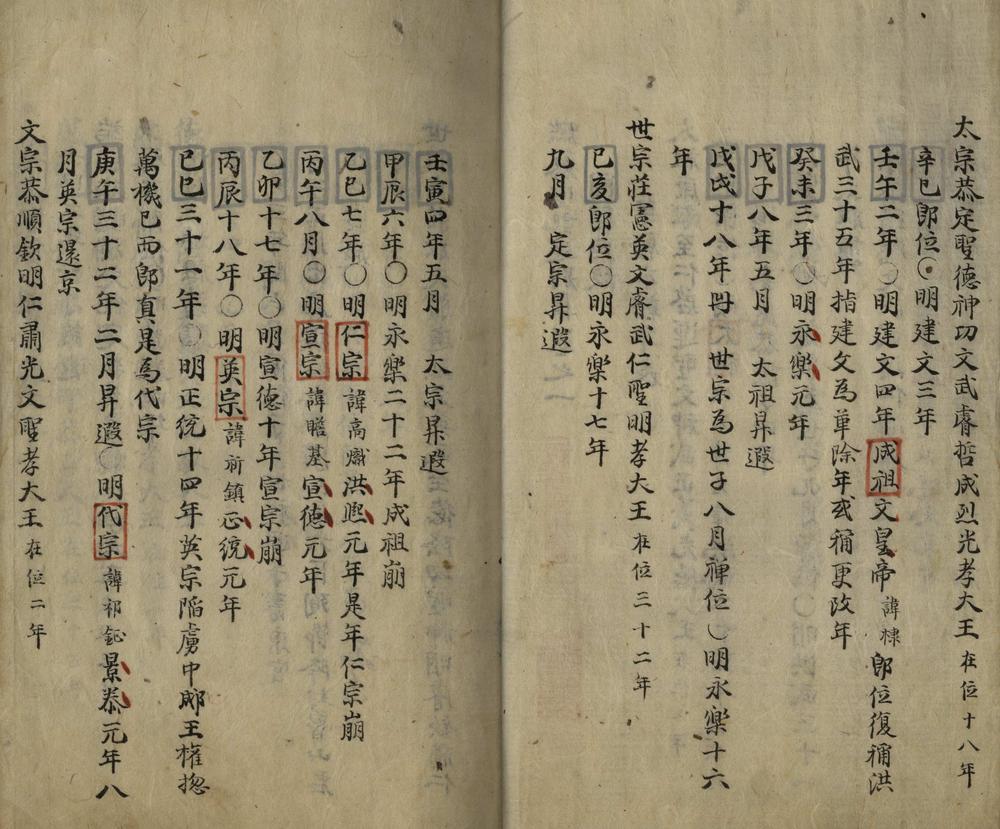 太宗恭定聖德神功文武睿哲成烈光孝大王在位十八年
辛巳即位〇明建文三年
壬午二年〇明建文四年成祖文皇帝諱棣即位復稱洪
武三十五年指建文為革除年或稱更改年
癸未三年〇明永樂元年
戊子八年五月 太祖昇遐
戊戌十八年冊 世宗為世子八月禪位〇明永樂十六
年
世宗莊憲英文睿武仁聖明孝大王在位三十二年
己亥即位〇明永樂十七年
九月 定宗昇遐
壬寅四年五月 太宗昇遐
甲辰六年〇明永樂二十二年成祖崩
乙巳七年〇明仁宗諱高熾洪熙元年是年仁宗崩
丙午八月〇明宣宗諱瞻基宣德元年
乙卯十七年〇明宣德十年宣宗崩
丙辰十八年〇明英宗諱祈鎮正統元年
己巳三十一年〇明正統十四年英宗陷虜中郕王權摠
萬機已而即真是為代宗
庚午三十二年二月昇遐〇明代宗諱祁鈺景泰元年八
月英宗還京
文宗恭順欽明仁肅光文聖孝大王在位二年